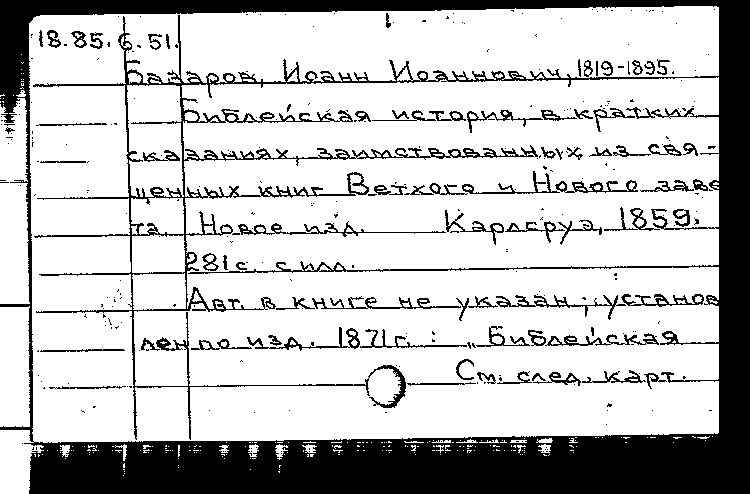 18.85.6.51.
Базаров, Иоанн Иоаннович, 1819-1895.
Библейская история, в кратких
сказаниях, заимствованных из свя-
щенных книг Ветхого и Нового заве
та. Новое изд. Карлсруэ, 1859.
281 с. с илл.
Авт. в книге не указан; установ
лен по изд. 1871 г. : „Библейская
См. след. карт.